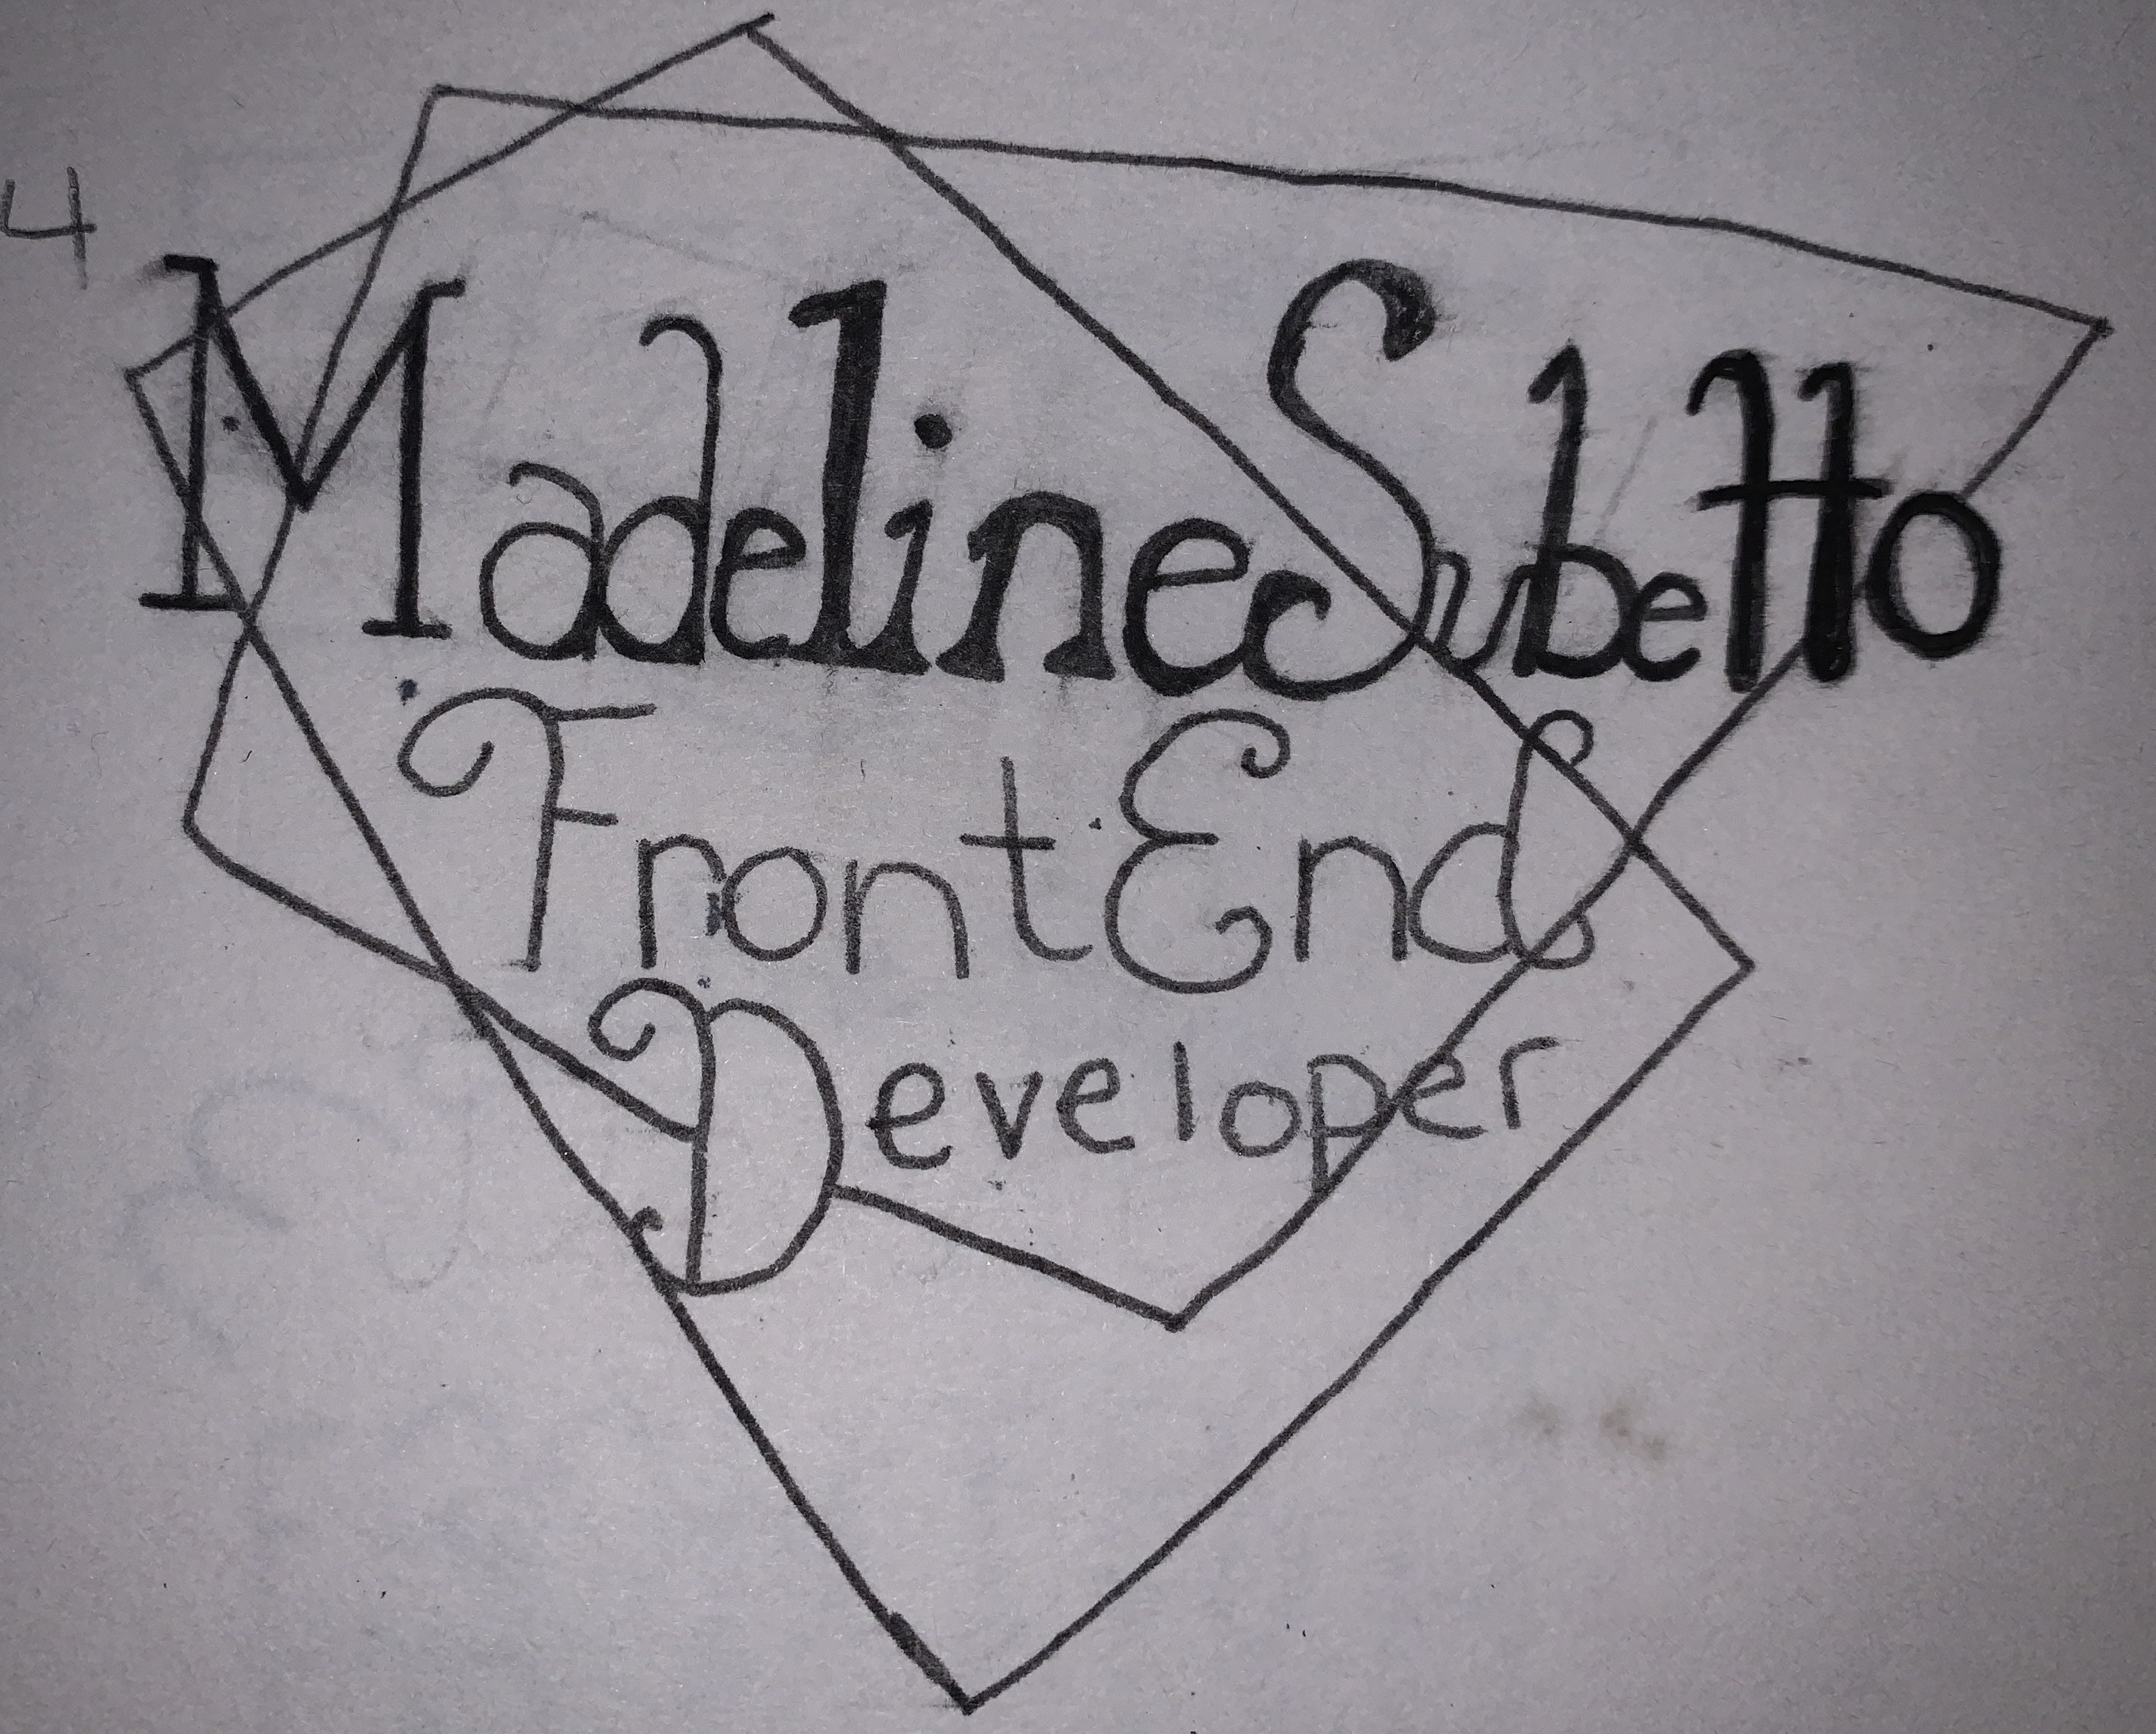 4
Madeline Subetto
Front End
Developer